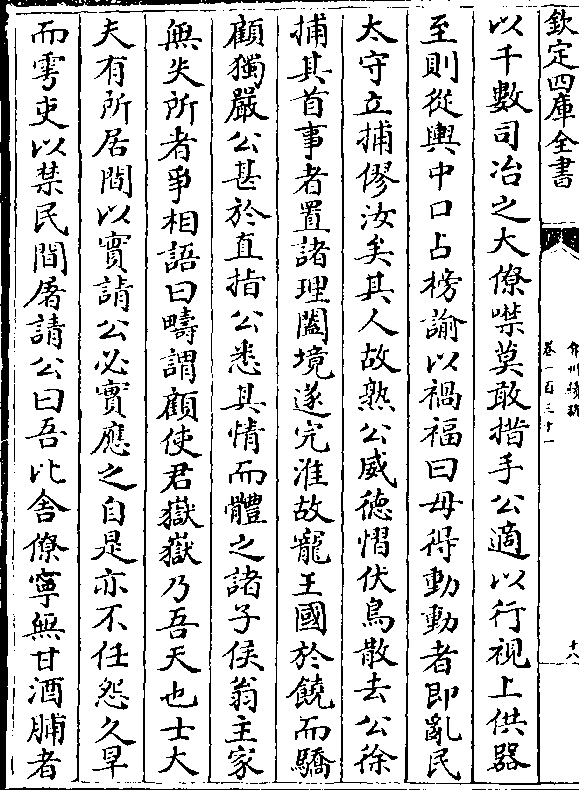 欽定四庫全書
弇州續稿
卷一百三十一
十八
以千數司冶之大僚噤莫敢措手公適以行視上供器
至則從輿中口占榜諭以禍福曰毋得動動者即亂民
太守立捕僇汝矣其人故熟公威德慴伏鳥散去公徐
捕其首事者置諸理闔境遂完淮故寵王國於饒而驕
顧獨嚴公甚於直指公悉其情而體之諸子侯翁主家
無失所者爭相語曰疇謂顧使君嶽嶽乃吾天也士大
夫有所居間以實請公必實應之自是亦不任怨久旱
而雩吏以禁民間屠請公曰吾比舍僚寧無甘酒脯者